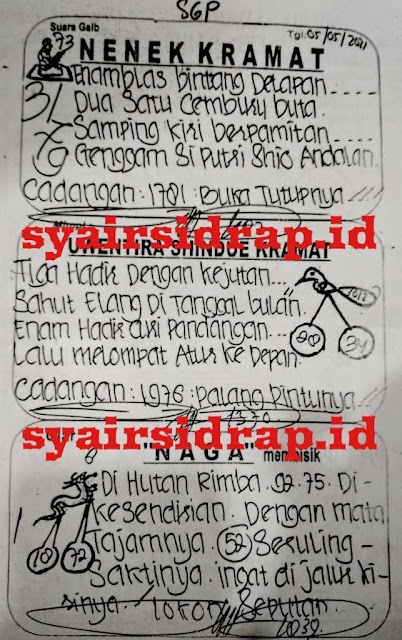 SGP
Suara Gaib
Tgl: 05/05/2021
73
NENEK KRAMAT
Enambelas bintang Delapan....
Dua Satu Cemburu buta.
Samping kiri berpamitan....
Genggam Si Putri Shio Andalan.
Cadangan: 1701: Buka Tutupnya
syairsidrap.id
UWENTIRA SHINDUE KRAMAT
Tiga Hadir Dengan Kejutan...
Sahut Elang Di Tanggal bulan.
Enam Hadir dari Pandangan...
Lalu melompat Atur Ke Depan.
90
34
Cadangan: 1976: Palang Pintunya
1370
syairsidrap.id
8
"NAGA" membisik
Di Hutan Rimba .92.75. Di-
kesendirian. Dengan mata
Tajamnya. 52 Seruling-
Saktinya. ingat di jalur ki-
rinya.
10
72
Seputan.
2030.